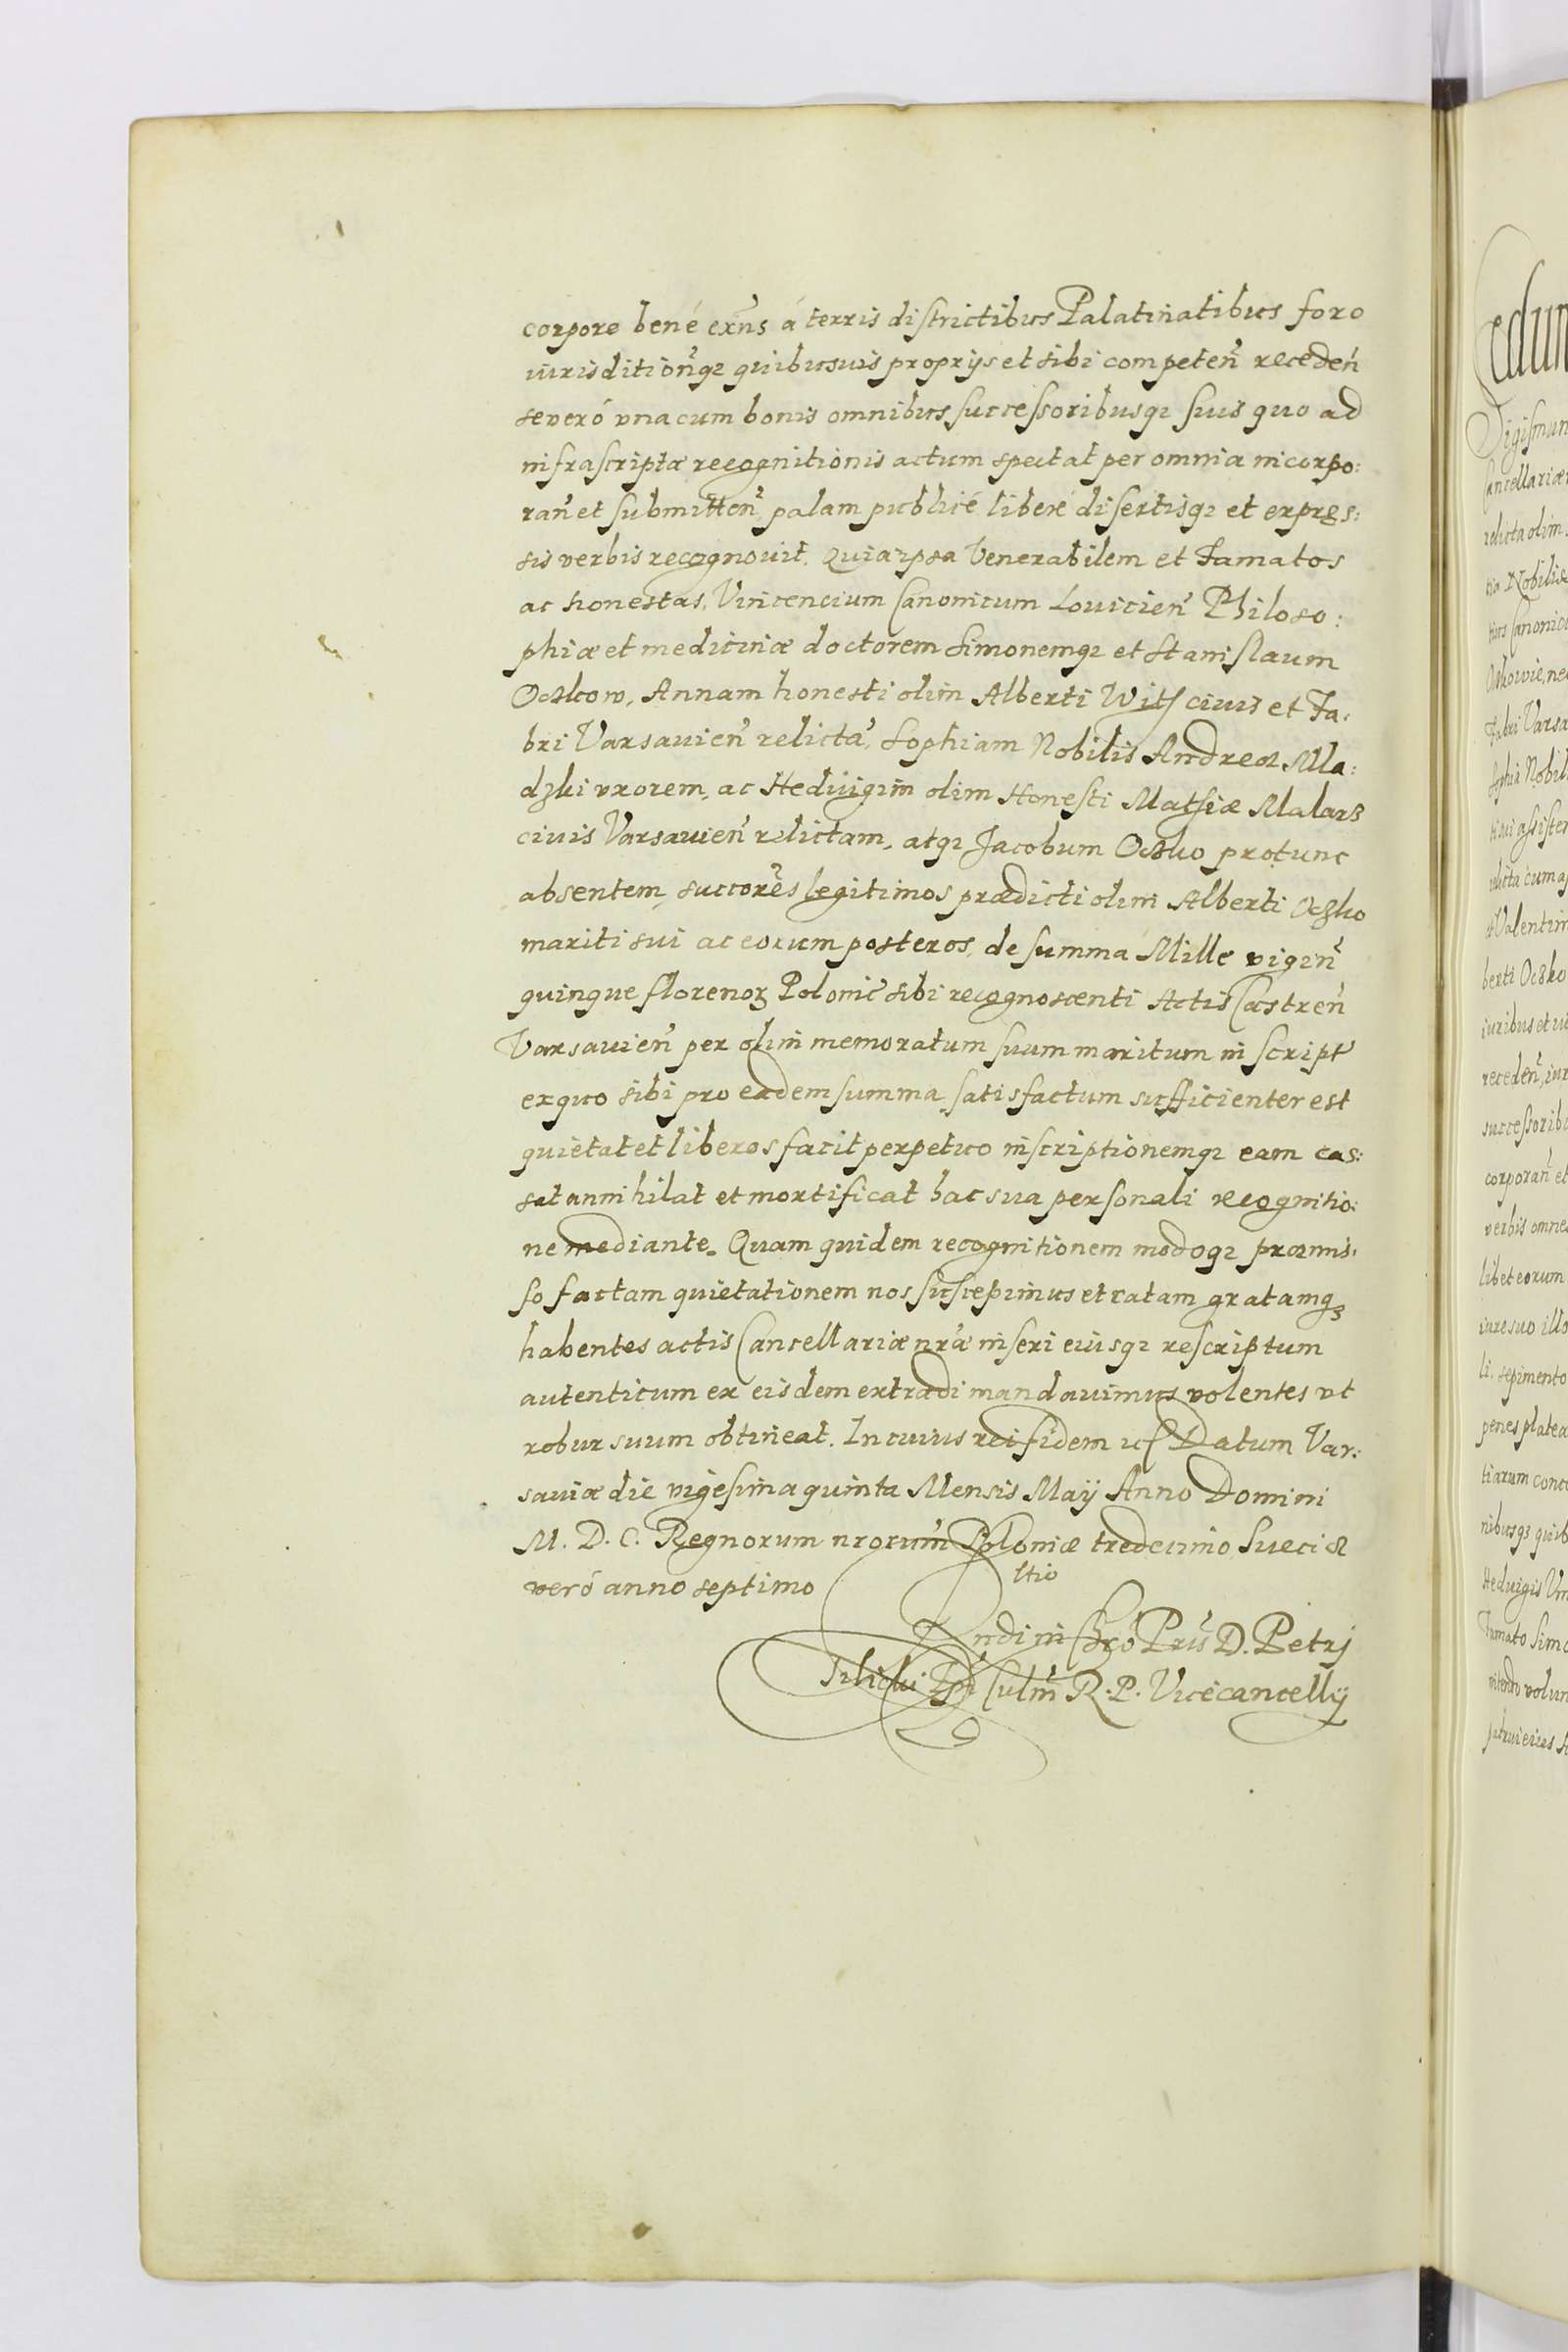 corpore bené exñs á terris districtibus Palatinatibus foro
iurisditioñq; quibusuis proprijs et sibi competeñ receden̄
se veró vna cum bonis omnibus successoribusq; suis quo ad
infrascriptæ recognitionis actum spectat per omnia incorpo:
rañ et submitteñ palam publicé liberé disertisq; et expres:
sis verbis recognouit. Quia ipsa Venerabilem et Famatos
ac honestas, Vincencium Canonicum Lovicieñ Philoso:
phiæ et medicinæ doctorem Simonemq; et Stanislaum
Oczkow, Annam honesti olim Alberti Wits ciuis et Fa:
bri Varsavieñ relictã, Sophiam Nobilis Andreæ Mla:
dzki vxorem, ac Hedvigim olim Honesti Matsiæ Malarz
civis Varsavieñ relictam, atq; Jacobum Oczko protunc
absentem, succorẽs legitimos prædicti olim Alberti Oczko
mariti sui ac eorum posteros, de summa Mille vigiñ
quinque florenoꝝ Polonic̃ sibi recognoscenti Actis Castreñ
Varsavieñ per olim memoratum suum maritum in script̃
ex quo sibi pro eadem summa satisfactum sufficienter est
quietat et liberos facit perpetuo inscriptionemq; eam cas:
sat annihilat et mortificat hac sua personali recognitio:
ne mediante. Quam quidem recognitionem modoq; præmis:
so factam quietationem nos suscepimus et ratam gratamq;
habentes actis Cancellariæ nr̃æ inseri eiusq; rescriptum
autenticum ex eisdem extradi mandavimus volentes vt
robur suum obtineat. In cuius rei fidem Datum Var:
saviæ die vigesima quinta Mensis Maÿ Anno Domini
M. D. C. Regnorum nrorum̃ Poloniæ tredecimo Sueciæ
veró anno septimo
ltio
Rndi in Chrõ Prĩs D. Petrj
Tilicki Ep̃i Culm̃ R. P. Vicecancellÿ
edun
Sigismun
Cancellariæ
relicta olim
Nobilis
Canonic
Oczkowie, ne
Fabri Varsa
Sophia Nobil
assister
cum a
Valentin
berti Oczko
iuribus et
recedeñ, iur
successorib
corporañ et
verbis omne
libet eorum
iure suo illo
li, sepimento
penes platea
tiarum conc
nibusq; quib
Hedvigis
Famato Simo
volun